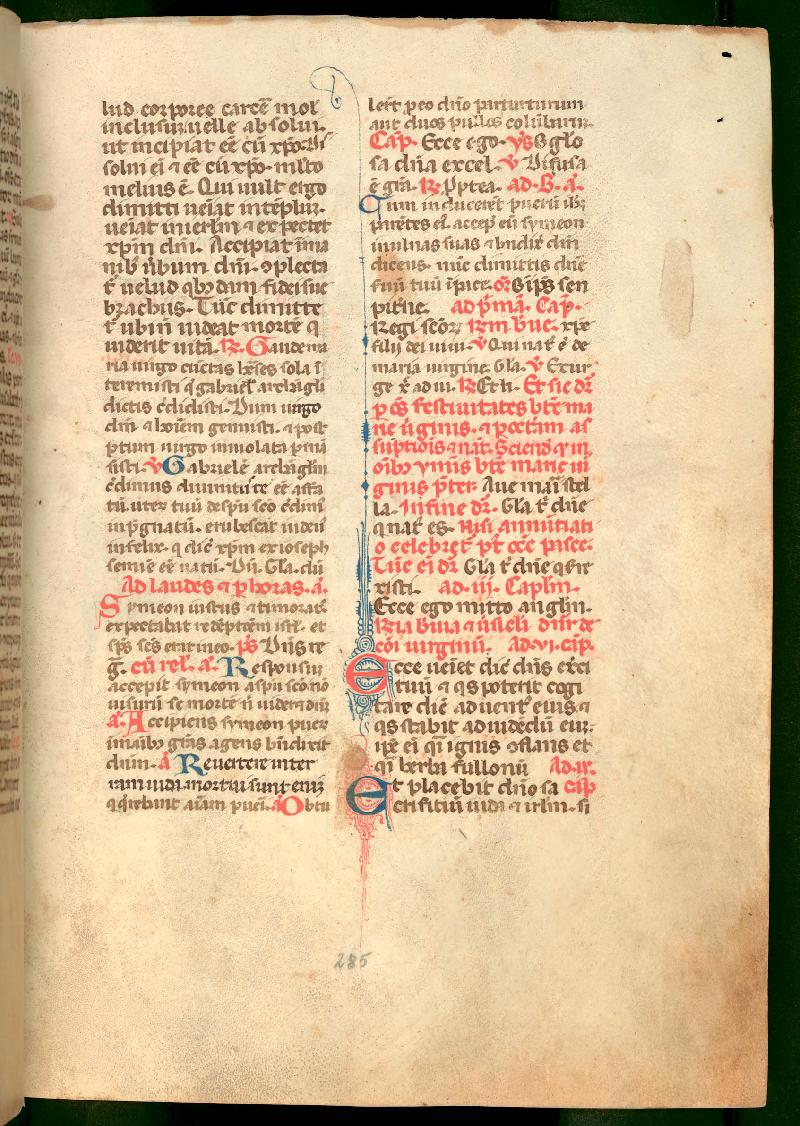 lud corporee carcẽ mol
inclusum uelle absolui.
ut incipiat eẽ cũ xp̃o. Di
solui ei ⁊ eẽ cũ xp̃o. m̃lto
melius ẽ. Qui uult ergo
dimitti ueĩat in tẽplum.
ueĩat in ierl̃m ⁊ expectet
xp̃m dm̃. Accipiat ĩma
nib̃ ũbum dm̃. ꝯplecta
t᷑ uelud qb̃dam fidei sue
brachiis. Tũc dimitte
t᷑ ub̃m uideat mortẽ q
uiderit uitã. R̃. Gaude ma
ria uirgo cũctas hẽses sola ĩ
teremisti q̃ gabriel̃ archãgli
dictis c̃didisti. Dum uirgo
dm̃ ⁊ hoĩem genuisti. ⁊ post
ptum uirgo inuiolata p̃mã
sisti. ℣ Gabrielẽ archãglm̃
c̃dimus diuinitus te eẽ affa
tũ. uterũ tuũ de sp̃u sc̃o c̃dim̃
inp̃gnatũ. erubescat iudeus
infelix. q̃ dic̃ xp̃m ex ioseph
semie eẽ natũ. Dũ. Gla. dũ
Ad laudes ⁊ p̱ horas. a.
Symeon iustus ⁊ timorat᷒
expectabat redẽptõem isrl̃. et
sp̃s sc̃s erat in eo. p̃s Dñs re
g̃. cũ rel̃. a. Responsum
accepit symeon a sp̃u sc̃o nõ
uisurũ se mortẽ ñ uideret dm̃
a. Accipiens symeon pueȝ
imaĩbȝ gr̃as agens bñdixit
dm̃. a Reuertere in ter
ram iuda. mortui sunt eni᷒
q̃ q̃rebant aĩam pueri. a Obtu
ler̃t p̱ eo dño par turturum
aut duos pullos colũbarum.
Cap̃. Ecce ego. ℣s O glo
sa dña excel. ℣ Difusa
ẽ gr̃a. R̃ Ppterea. ad. B. a.
Cum inducerẽt puerũ ih̃m
parẽtes ei᷒. accep̃ eũ symeon
in ulnas suas ⁊ bñdix̃ dm̃
dicens. nũc dimittis dñe
suũ tuũ ĩ pace. or̃ Õips sen
pit̃ne. ad p̃mã. Cap̃.
Regi sc̃loȝ R̃m br̃ue. xp̃e
filij dei uiui. ℣ Qui nat᷒ ẽ de
maria uirgine. Gla. ℣ Exur
ge x̃ adiu. R̃ Et li. Et sic dr̃
p̱ oẽs festiuitates bt̃e ma
rie ũginis. ⁊ p̱ octam as
sũptiõis ⁊ nat̃. Sciend̃ q̃ in
oĩbȝ ymĩs bt̃e marie ui
ginis p̃ter. Aue mar̃ stel
la. In fine dr̃. Gla t᷑ dñe
q̃ nat᷒ es. nisi annũtiati
o celebret᷑ p᷒t oct̃ pasce.
Tũc ei dr̃ Gla t᷑ dñe q̃ sr̃re
xisti. ad .iii. Caplm̃.
Ecce ego mitto anglm̃.
R̃ria br̃uia ⁊ ũsicl̃i dñr de
cõi uirginũ. Ad .vi. cap̃.
Ecce ueniet dic̃ dñs exẽi
tuũ ⁊ q̃s poterit cogi
tare diẽ aduent᷒ eius ⁊
q̃s stabit ad uidẽdũ eum.
ip̃e ei q̃i ignis ꝯflans et
q̃i herba fullonũ Ad .ix.
Et placebit dño sa cap̃
crifitiũ iuda ⁊ irlm̃. si
285